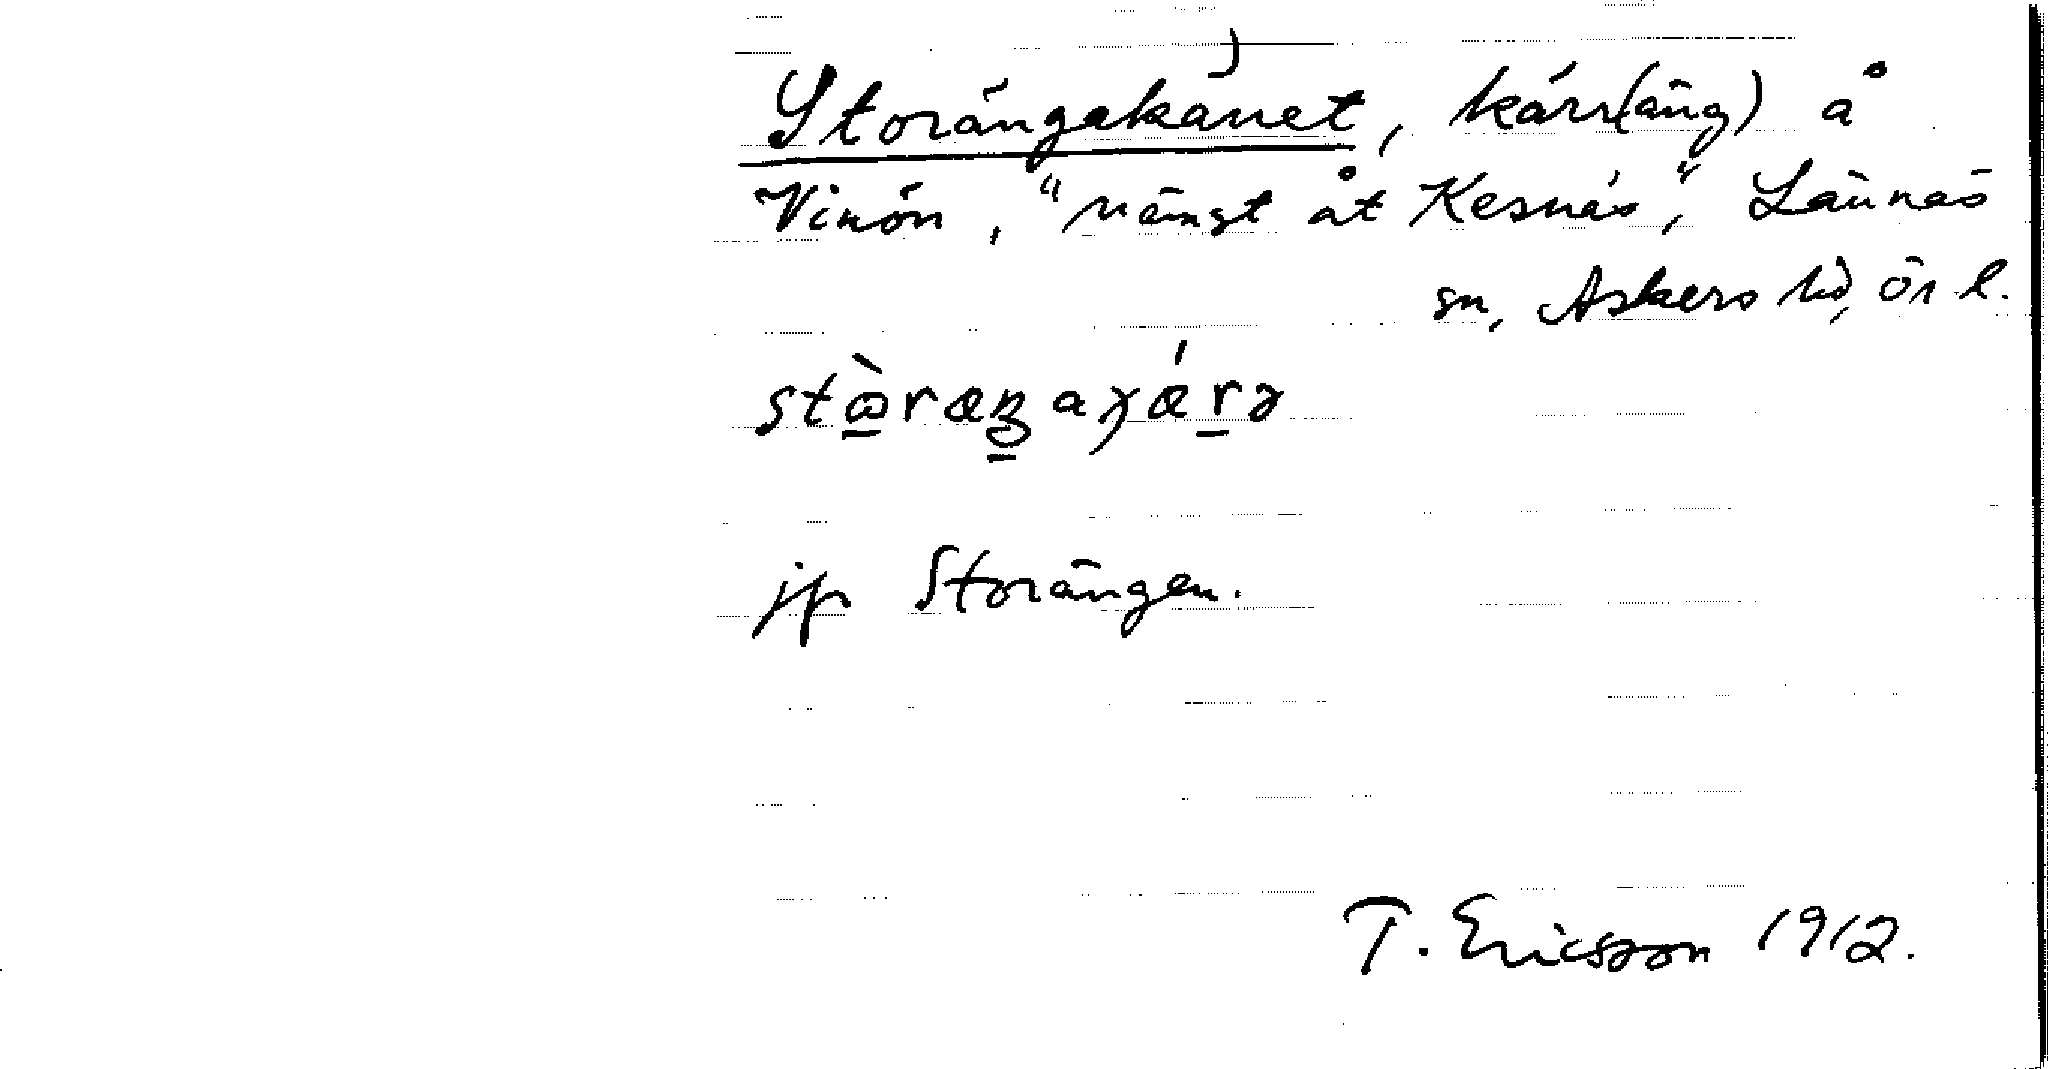 Storängakärret, kärr(äng) å
Vinön, "närmst åt Kesnäs", Lännäs
sn, Askers hd, Ör l.
jfr Storängen.
T. Ericsson 1912.